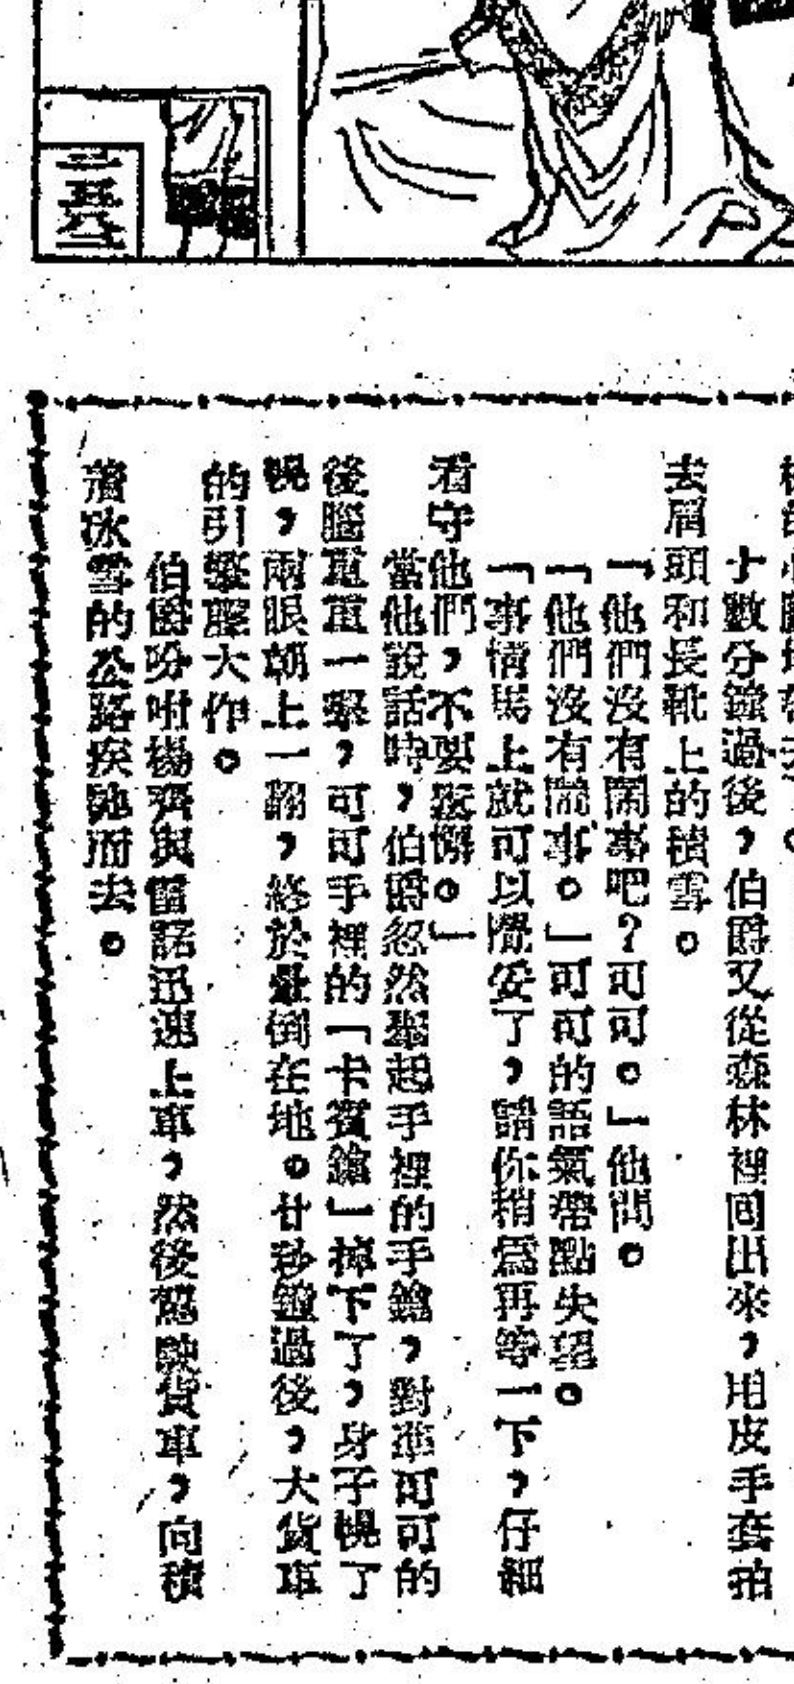 二五八二
十數分鐘過後，伯爵又從森林裡回出來，用皮手套拍
去肩頭和長靴上的積雪。
「他們沒有鬧事吧？可可。」他問。
「他們沒有鬧事。」可可的語氣帶點失望。
「事情馬上就可以攪妥了，請你稍爲再等一下，仔細
看守他們，不要鬆懈。」
當他說話時，伯爵忽然擧起手裡的手鎗，對準可可的
後腦重重一擊，可可手裡的「卡賓鎗」掉下了，身子幌了
幌，兩眼朝上一翻，終於暈倒在地。廿秒鐘過後，大貨車
的引擎聲大作。
伯爵吩咐楊齊與雷諾迅速上車，然後駕駛貨車，向積
着冰雪的公路疾馳而去。